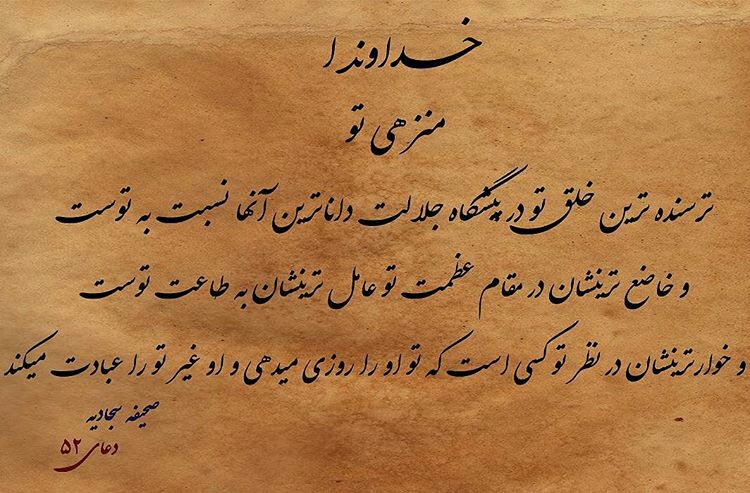 خداوندا
منزهی تو
ترسنده ترین خلق تو در پیشگاه جلالت داناترین آنها نسبت به توست
و خاضع ترینشان در مقام عظمت تو عامل ترینشان به طاعت توست
و خوارترینشان در نظر تو کسی است که تو او را روزی میدهی و او غیر تو را عبادت میکند
صحیفه سجادیه
دعای ۵۲